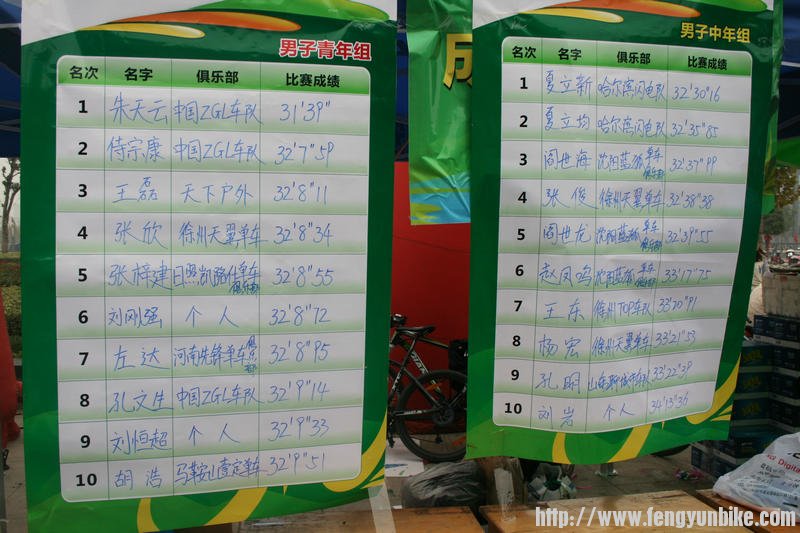 男子青年组
名次 名字 俱乐部 比赛成绩
1 朱天云 中国ZGL车队 31'39"
2 侍宗康 中国ZGL车队 32'7"59
3 王磊 天下户外 32'8"11
4 张欣 徐州天翼单车 32'8"34
5 张梓建 日照凯路仕单车俱乐部 32'8"55
6 刘刚强 个人 32'8"72
7 左达 河南先锋单车俱乐部 32'8"95
8 孔文生 中国ZGL车队 32'9"14
9 刘恒超 个人 32'9"33
10 胡浩 马鞍山壹定单车 32'9"51
成
男子中年组
名次 名字 俱乐部 比赛成绩
1 夏立新 哈尔滨闪电队 32'30"16
2 夏立均 哈尔滨闪电队 32'35"85
3 阎世海 沈阳蓝狐单车俱乐部 32'37"99
4 张俊 徐州天翼单车 32'38"38
5 阎世龙 沈阳蓝狐单车俱乐部 32'39"55
6 赵凤鸣 沈阳蓝狐单车俱乐部 33'17"75
7 王东 徐州TOP车队 33'20"91
8 杨宏 徐州天翼单车 33'21"53
9 孔明 山东聊城市车队 33'22"39
10 刘岩 个人 34'13"36
Digital
http://www.fengyunbike.com